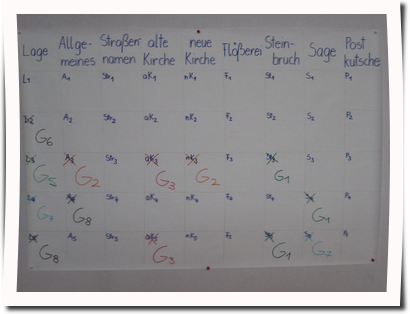 Lage Allge- meines Straßen namen alte Kirche neue Kirche Flößerei Stein- bruch Sage Post kutsche
L1 A1 Str1 aK1 nK1 F1 St1 S1 P1
A2 Str2 aK2 nK2 F2 St2 S2 P2
G6
A3 Str3 aK3 nK3 F3 St3 S3 P3
G5 G2 G3 G2 G1
Str4 aK4 nK4 F4 St4 P4
G7 G8 G1
A5 Str5 nK5 F5
G8 G3 G1 G7